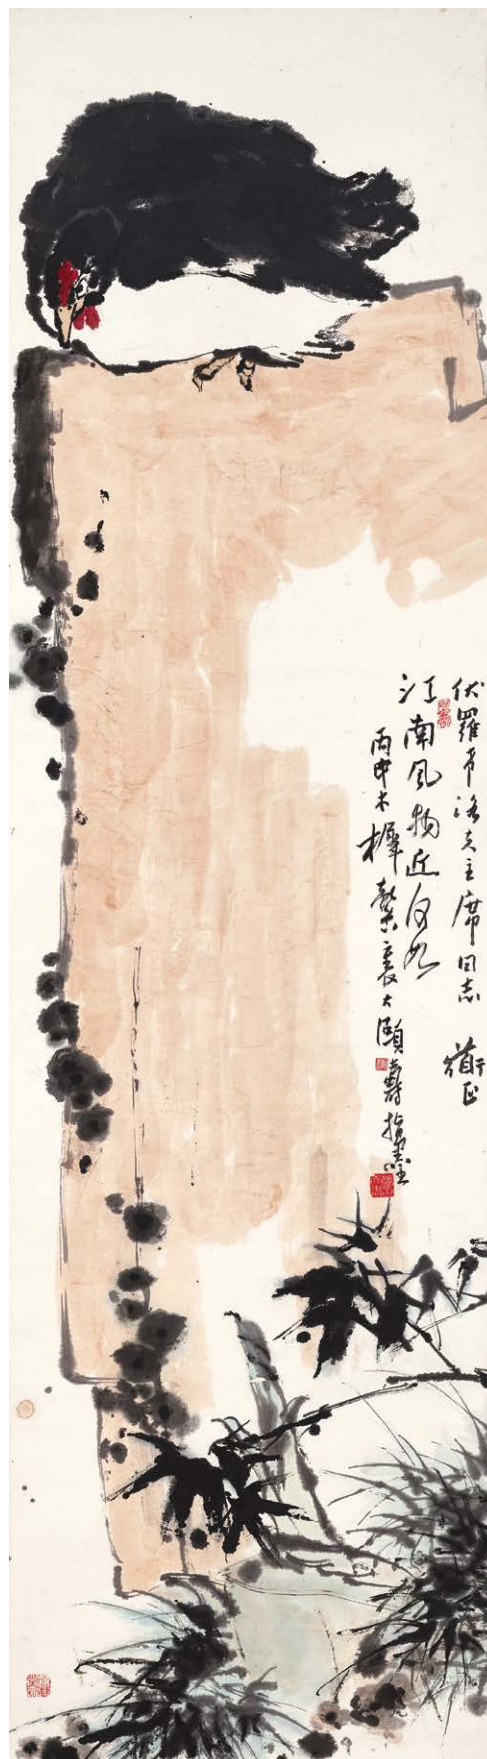 伏羅希洛夫主席同志 衜正
江南風物近何如
丙申木樨熏裏大頤壽指墨